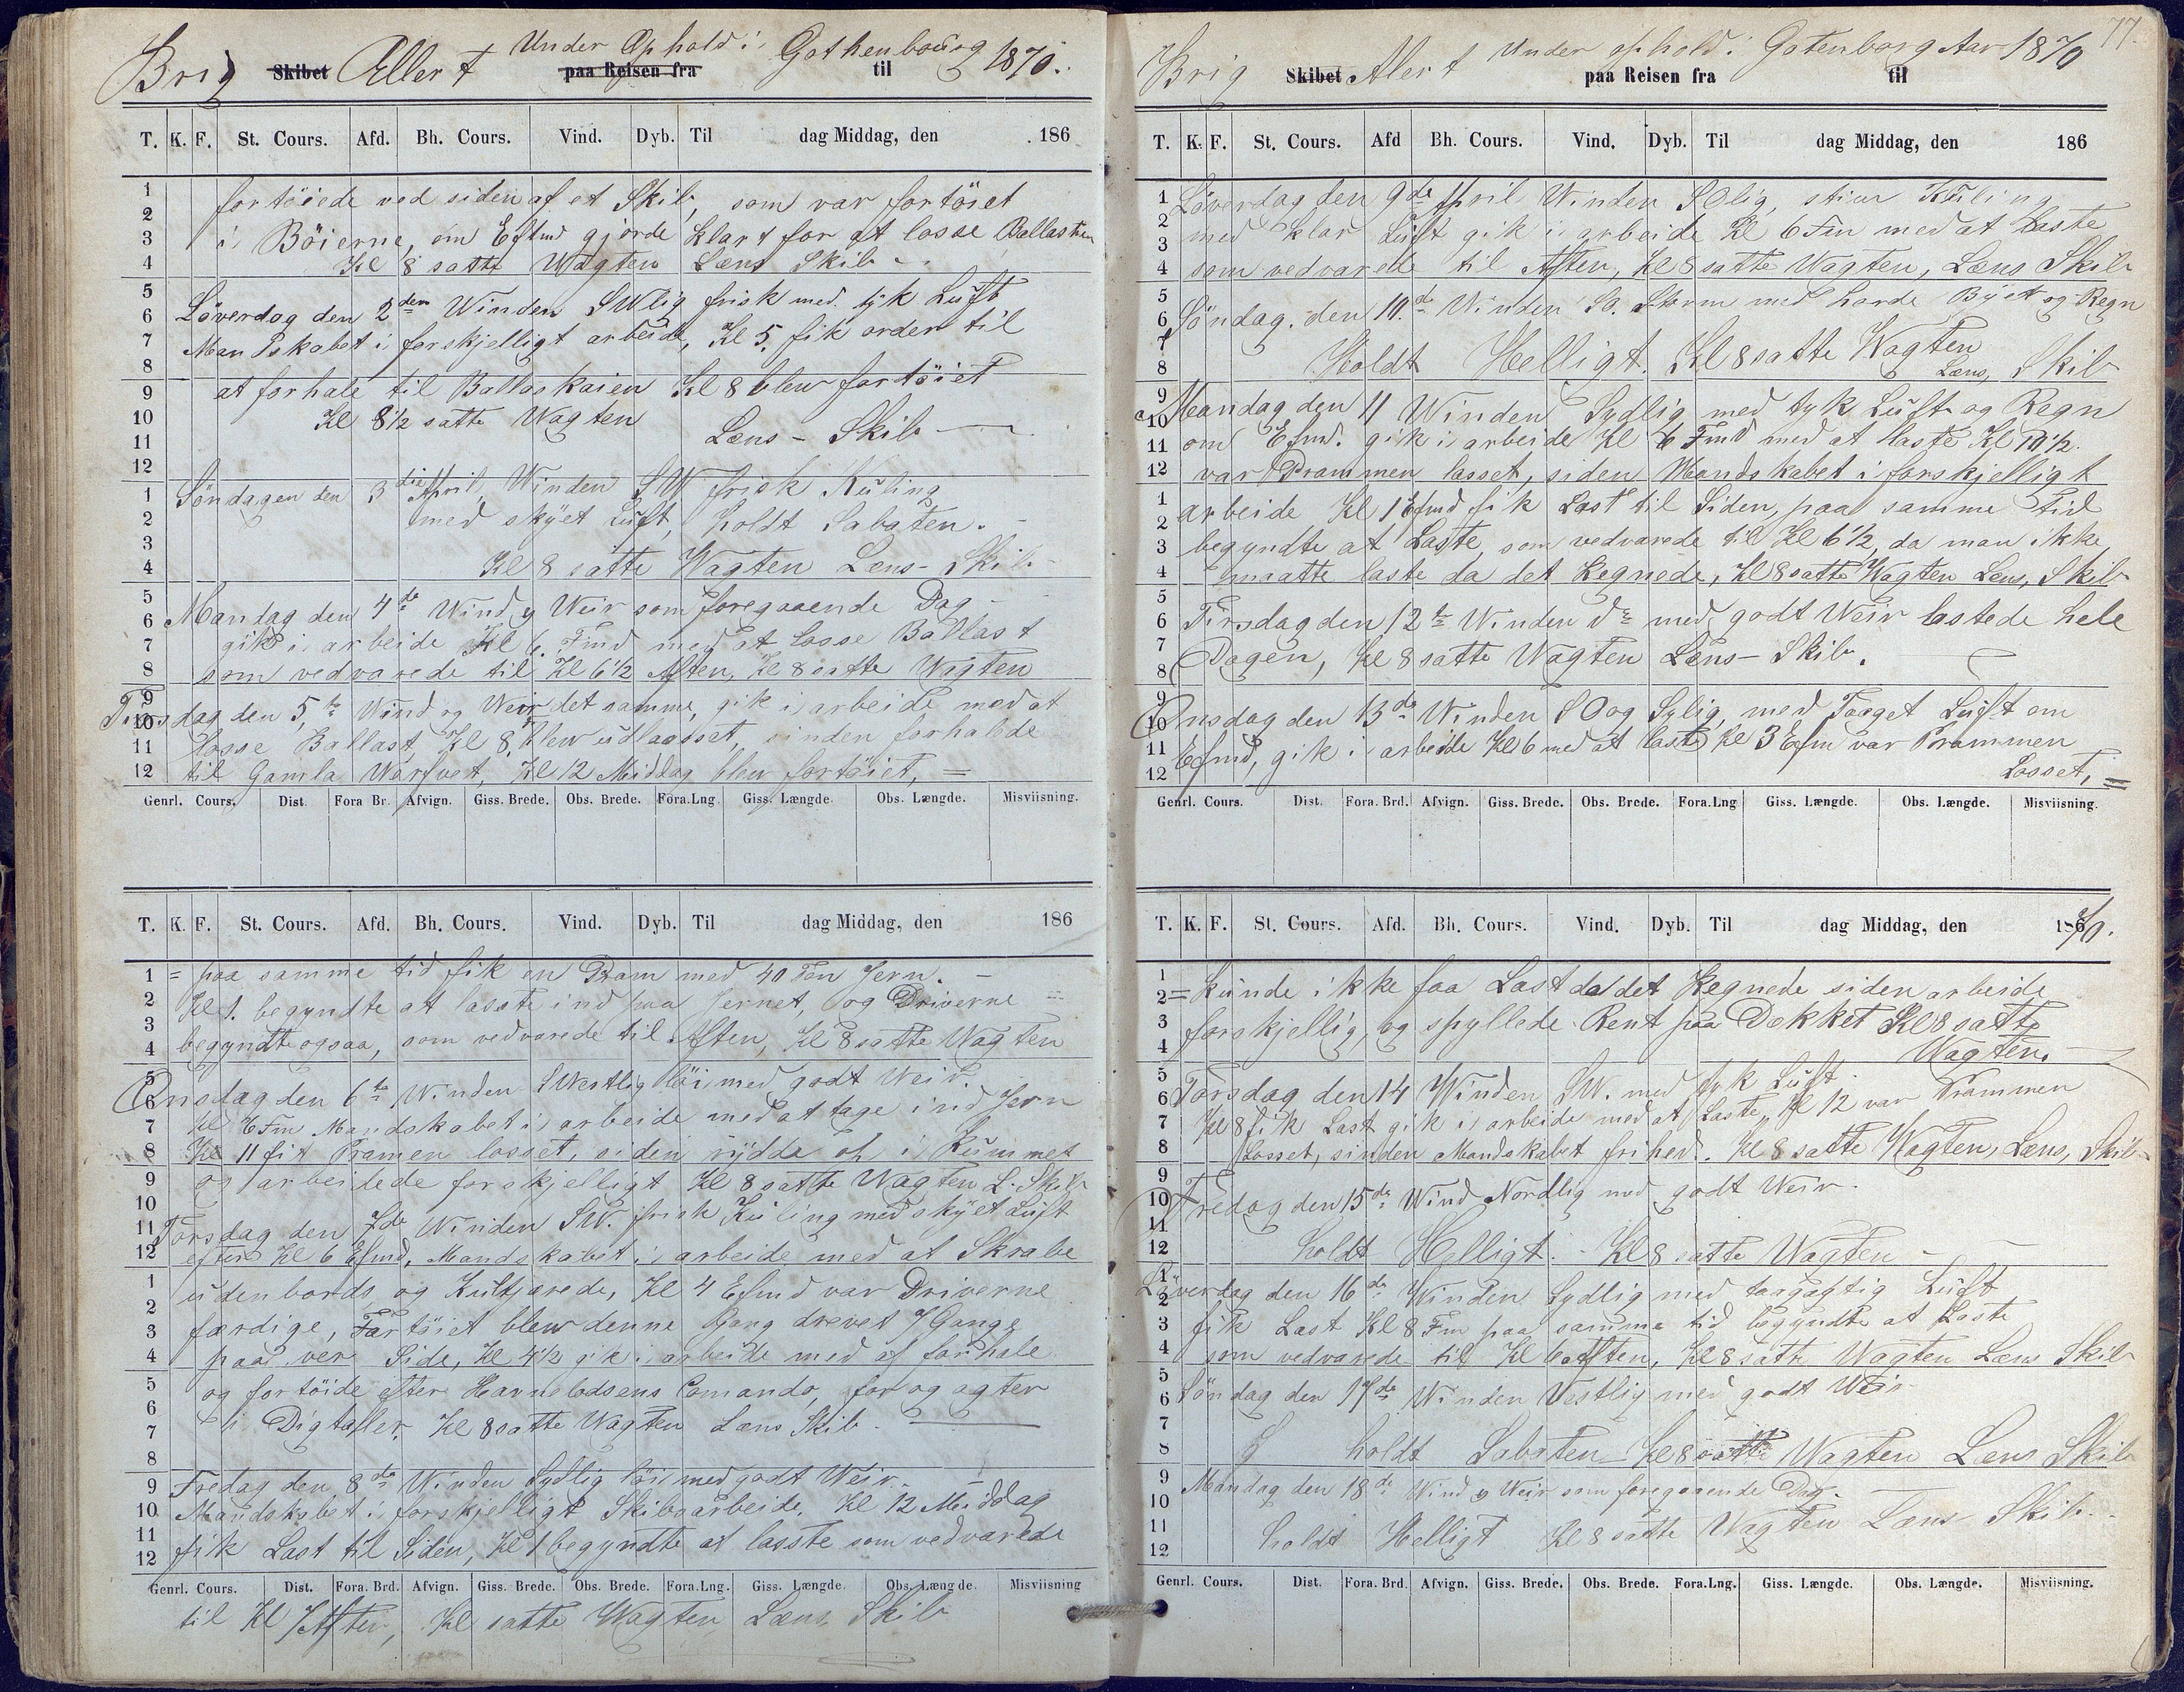 Brig Skibet Allert Under Ophold i Gothenbourg 1870.
paa Reisen fra til
T. K. F. St. Cours. Afd. Bh. Cours. Vind. Dyb. Til dag Middag, den 186
fortöiede ved siden af et Skib, som var fortöiet
i Böierne, om Eftmd gjorde klart for at losse Ballasten
Kl 8 satte Wagten Læns Skib
Löverdag den 2den Winden SWlig frisk med tyk Luft
Mandskabet i forskjelligt arbeide, Kl 5. fik order til
at forhale til Ballaskaien Kl 8 blew fortöiet
Kl 8 1/2 satte Wagten
Læns - Skib
Söndagen den 3die April, Winden SW frisk Kuling
med skyet Luft, holdt Sabaten.
Kl 8 satte Wagten Læns - Skib
Mandag den 4de Wind og Weir som foregaaende Dag
gik i arbeide Kl 6. Fmd med at losse Ballast
som vedvarede til Kl 6 1/2 Aften, Kl 8 satte Wagten
Tirsdag den 5.te Wind og Weir det samme, gik i arbeide med at
losse Ballast, Kl 8. blew udlaasset, sinden forhalede
til Gamla Warfvet, Kl 12 Middag blew fortöiet, =
Genrl. Cours. Dist. Fora Br. Afvign. Giss. Brede. Obs. Brede. Fora.Lng. Giss. Længde. Obs. Længde. Misviisning.
T. K. F. St. Cours. Afd. Bh. Cours. Vind. Dyb. Til dag Middag, den 186
= paa samme tid fik en Pram med 40 Ton Jern. -
Kl 1. begyndte at lasste ind paa Jernet, og Driverne
begyndte ogsaa, som vedvarede til Aften, Kl 8 satte Wagten
Onsdag den 6te Winden SWestlig löi med godt Weir.
Kl 6 Fm Mandskabet i arbeide med at tage ind Jern
Kl 11 fik Pramen losset, siden rydda op i Rummet
og arbeidede forskjelligt Kl 8 satte Wagten L. Skib
Torsdag den 7de Winden SW. frisk Kuling med skyet Luft
efter Kl 6 Efmd, Mandskabet i arbeide med at Skrabe
udenbords og Kultjærede, Kl 4 Efmd var Driverne
færdige, Fartöiet blew denne Gang drevet 7 Gange
paa ver Side, Kl 4 1/2 gik i arbeide med at forhale
og fortöide efter Havnelodsens Comando, for og agter
i Digtaller. Kl 8 satte Wagten Læns Skib.
Fredag den 8de Winden Sydlig löi med godt Weir. -
Mandskabet i forskjelligt Skibsarbeide. Kl 12 Middag
fik Last til Siden, Kl 1 begyndte at lasste som vedvarede
Genrl. Cours. Dist. Fora. Brd. Afvign. Giss. Brede. Obs. Brede. Fora.Lng. Giss. Længde. Obs. Længde. Misviisning
til Kl 7 Aften, Kl satte Wagten Læns, Skib
77.
Brig Skibet Alert Under ophold i Gotenborg Aar 1870
paa Reisen fra til
T. K. F. St. Cours. Afd Bh. Cours. Vind. Dyb. Til dag Middag, den 186
Löverdag den 9de April Winden SOlig, stiv Kuling
med klar Luft gik i arbeide Kl 6 Fm med at Laste
som vedvarede til Aften, Kl 8 satte Wagten, Læns Skib
Söndag. den 10.de Winden So. Storm med harde Byet og Regn
Holdt Helligt. Kl 8 satte Wagten
Læns, Skib
Mandag den 11 Winden Sydlig med tyk Luft og Regn
om Efmd. gik i arbeide Kl 6 Fmd med at laste Kl 10 1/2.
var Prammen losset, siden Mandskabet i forskjelligt
arbeide Kl 1 Efmd fik Last til Siden, paa samme Tid
begyndte at Laste, som vedvarede til Kl 6 1/2, da man ikke
maatte laste da det Regnede, Kl 8 satte Wagten Læns, Skib
Tirsdag den 12te Winden do med godt Weir lastede hele
Dagen, Kl 8 satte Wagten Læns - Skib.
Onsdag den 13de Winden SO og Sylig, med Taaget Luft om
Efmd, gik i arbeide Kl 6 med at laste Kl 3 Efm var Prammen
Losset, =
Genrl. Cours. Dist. Fora. Brd. Afvign. Giss. Brede. Obs. Brede. Fora.Lng Giss. Længde. Obs. Længde. Misviisning.
T. K. F. St. Cours. Afd. Bh. Cours. Vind. Dyb. Til dag Middag, den 1870.
= kunde ikke faa Last da det Regnede siden arbeide
forskjellig, og spyllede Rent paa Dekket Kl 8 satte
Wagten.
Torsdag den 14 Winden SW. med tyk Luft.
Kl 8 fik Last gik i arbeide med at Laste, Kl 12 var Prammen
Losset, sinden Mandskabet frihed. Kl 8 satte Wagten, Læns, Skib
Fredag den 15de Wind Nordlig med godt Weir.
holdt Helligt. - Kl 8 satte Wagten -
Löverdag den 16de Winden Sydlig med taagagtig Luft
fik Last Kl 8 Fm paa samme tid begyndte at Laste
som vedvarede til Kl 6 Aften, Kl 8 satte Wagten Læns Skib
Söndag den 17de Winden Vestlig med godt Weir
holdt Sabaten - Kl 8 satte Wagten Læns Skib
Mandag den 18de Wind og Weir som foregaaende Dag.
holdt Helligt Kl 8 satte Wagten Læns Skib.
Genrl. Cours. Dist. Fora. Brd. Afvign. Giss. Brede. Obs. Brede. Fora.Lng. Giss. Længde. Obs. Længde. Misviisning.